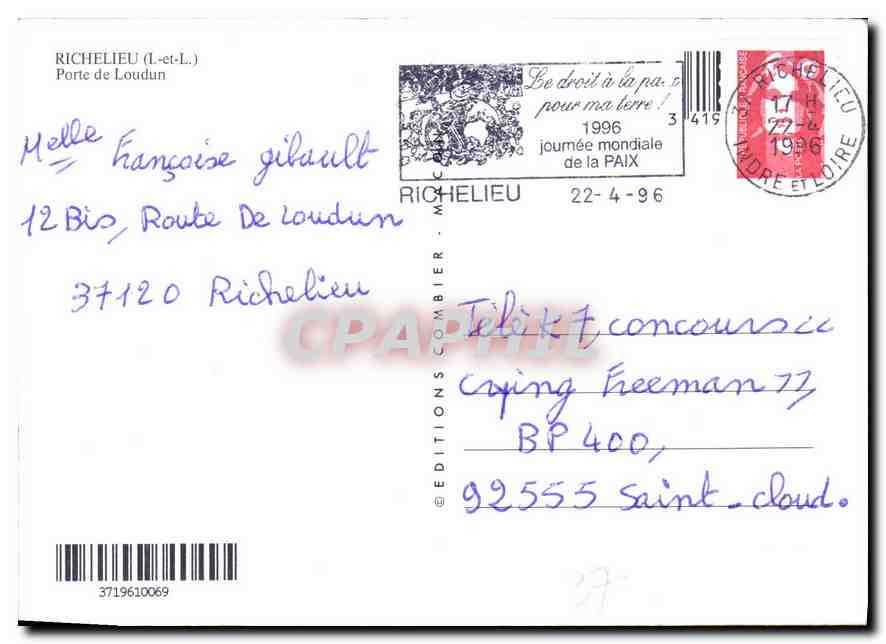 RICHELIEU (I.-et-L.)
Porte de Loudun
Le droit à la paix
pour ma terre !
1996
journée mondiale
de la PAIX
RICHELIEU 22-4-96
3 419
RÉPUBLIQUE FRANÇAISE
37 RICHELIEU
17 H
22-4
1996
INDRE ET LOIRE
Melle Françoise gibault
12 Bis, Route De Loudun
37120 Richelieu
Télé K7, concours "
Crying Freeman ",
BP 400,
92555 Saint-Cloud.
© EDITIONS COMBIER - MACON
CPAPHIL
3719610069
37